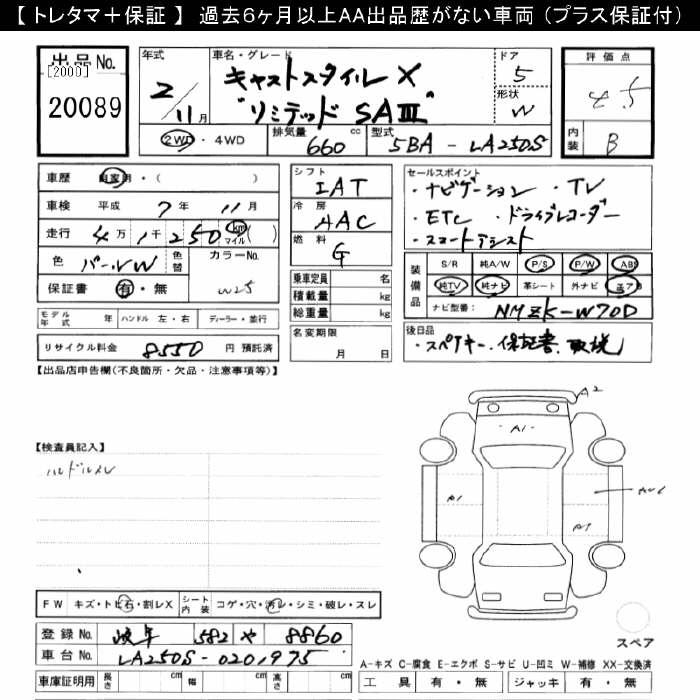 【 トレタマ＋保証 】 過去6ヶ月以上AA出品歴がない車両（プラス保証付）
出品No. 年式 車名・グレード ドア 評価点
[2000] 2/11月 キャストスタイル X 5 4.5
20089 "リミテッド SAⅢ" 形状 W
2WD・4WD 排気量 660 cc 型式 5BA - LA250S 内装 B
車歴 自家用・( ) シフト IAT セールスポイント
車検 平成 7年 11月 冷房 AAC ・ナビゲーション ・TV
走行 4万1千250 km マイル ( ) 燃料 G ・ETC ・ドライブレコーダー
・スマートアシスト
色 パールW 色替 カラーNo. W25
保証書 有・無
乗車定員 名
積載量 kg
総重量 kg
装備品 S/R 純A/W P/S P/W ABS
純TV 純ナビ 革シート 外ナビ エアB
ナビ型番: NMZK-W70D
モデル年式 年 ハンドル 左・右 ディーラー・並行
リサイクル料金 8550 円 預託済
名変期限 月 日
後日品
・スペアキー・保証書、取説
【出品店申告欄(不良箇所・欠品・注意事項等)】
A2
A1
【検査員記入】
ハンドルスレ
A1
A1
FW キズ・トビ石・割レX シート内装 コゲ・穴・汚レ・シミ・破レ・スレ
登録No. 岐阜 582 や 8860
スペア
車台No. LA250S-0201975
A-キズ C-腐食 E-エクボ S-サビ U-凹ミ W-補修 XX-交換済
車庫証明用 長さ cm 幅 cm 高さ cm
工具 有・無 ジャッキ 有・無